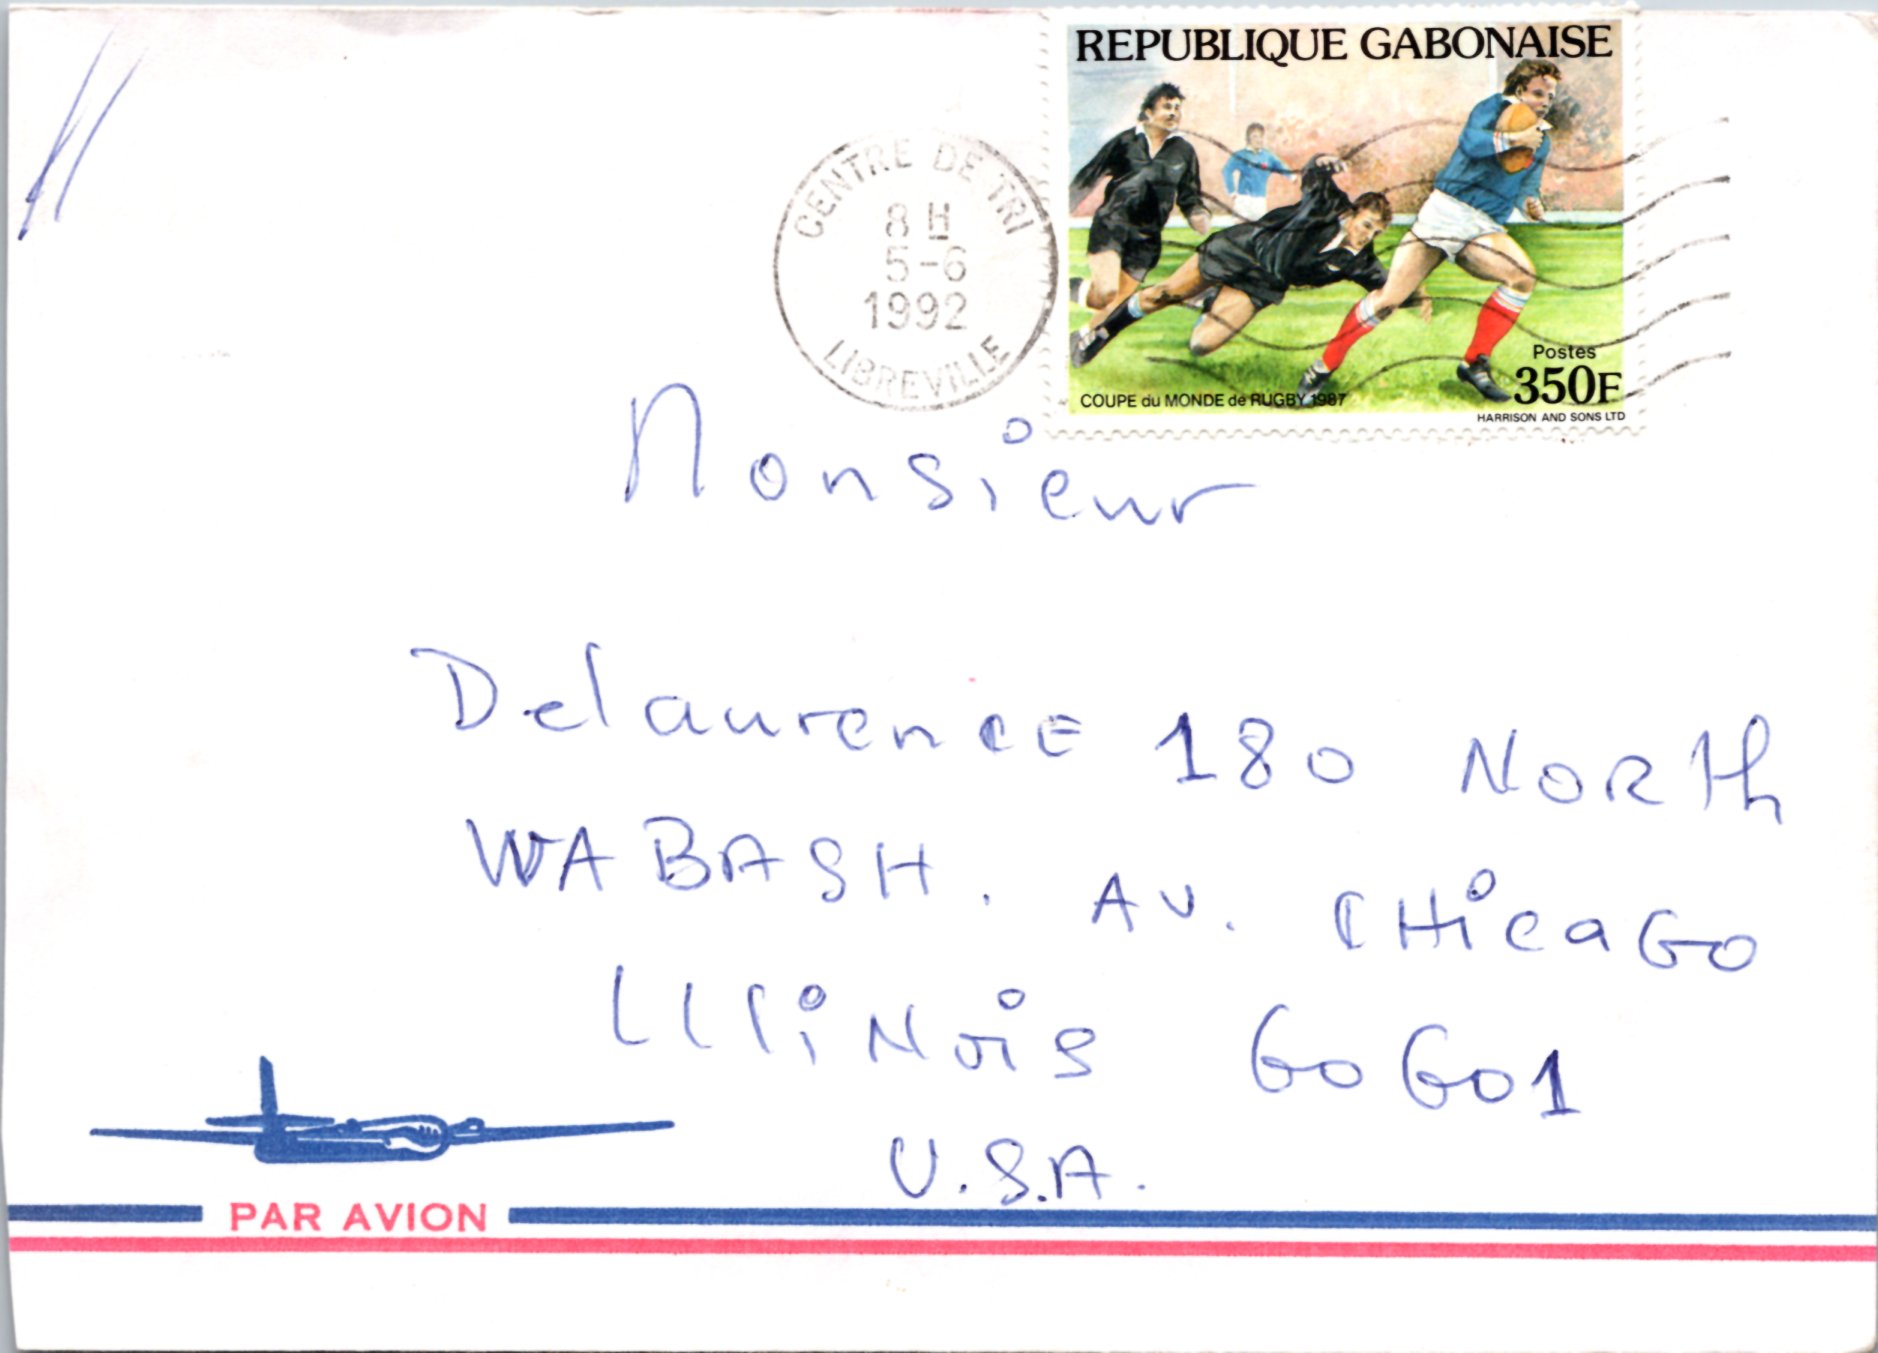 REPUBLIQUE GABONAISE
CENTRE DE TRI
8 H
5-6
1992
LIBREVILLE
Postes
350F
COUPE du MONDE de RUGBY 1987
HARRISON AND SONS LTD
Monsieur
DelaurencE 180 NORth
WABASH. AV. CHicaGo
LLliNoiS 60601
U.S.A.
PAR AVION